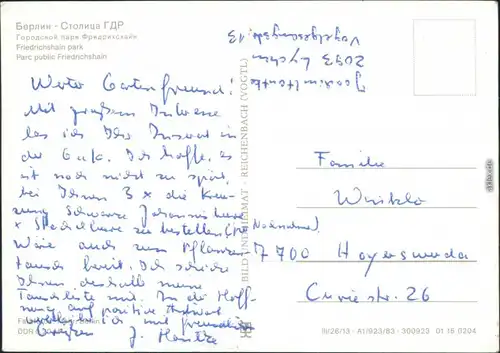 Берлин - Столица ГДР
Городской парк Фридрихсхайн
Friedrichshain park
Parc public Friedrichshain
Joachim
2093 Lychen
Vogelgesangstr. 13
Werter Gartenfreund!
Mit großem Interesse
las ich Ihr Inserat in
der GuK. Ich hoffe, es
ist noch nicht zu spät,
bei Ihnen 3 x die Kreu-
zung Schwarze Johannisbeere
x Stachelbeere zu bestellen (
Wäre auch zum Pflanzen-
tausch bereit. Ich schicke
Ihnen deshalb meine
Tauschliste mit. In der Hoff-
nung auf positive Antwort
ich mit freundlichen
Grüßen J.
BILD UND HEIMAT · REICHENBACH (VOGTL)
Familie
Winkler
7700 Hoyerswerda
Curiestr. 26
III/26/13 · A1/923/83 · 300923 01 15 0204